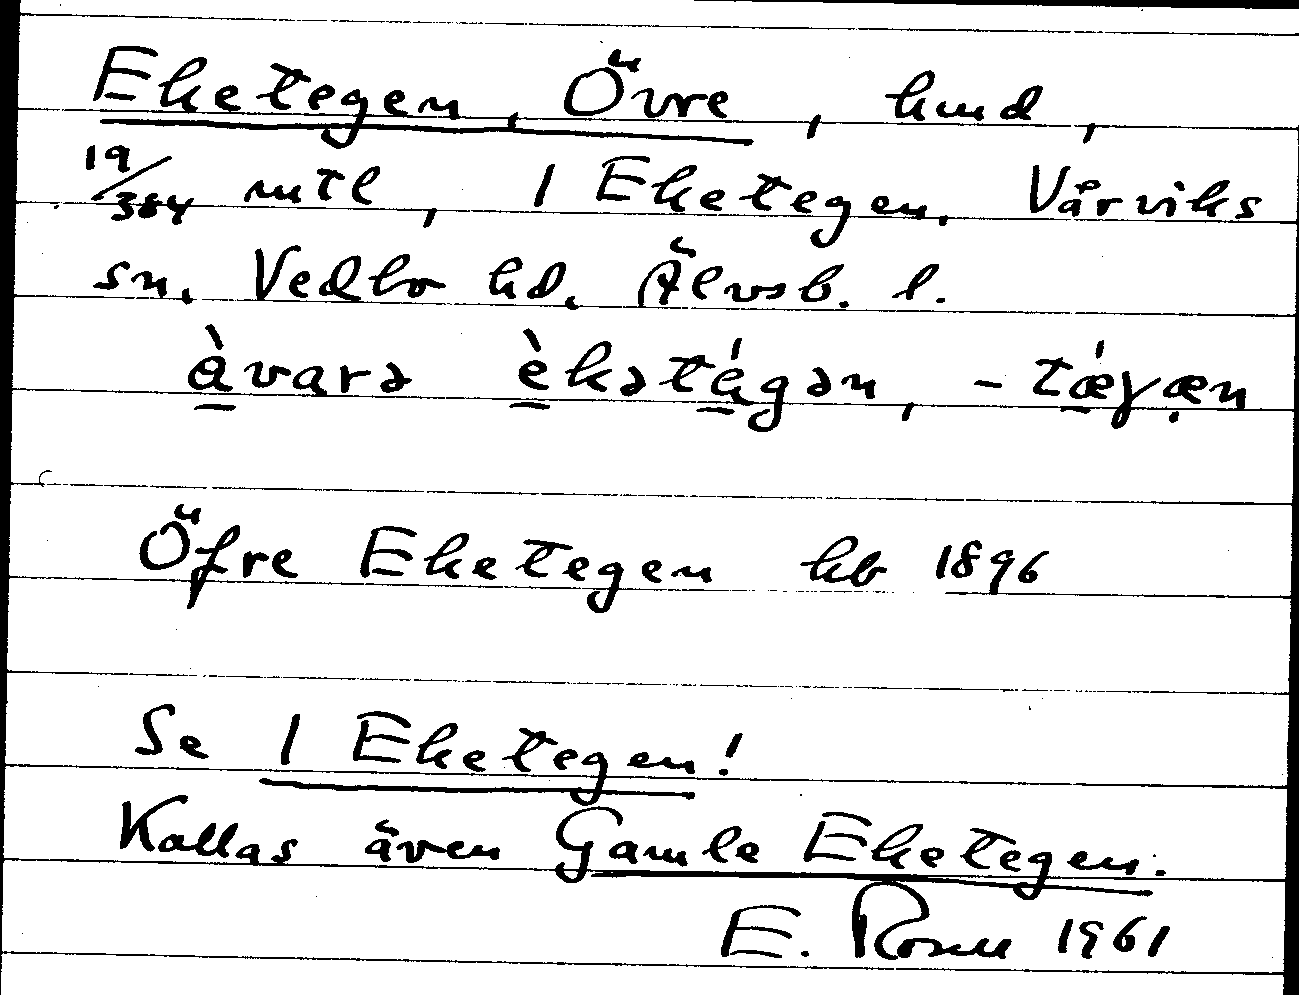 Eketegen, Övre, hmd,
19/384 mtl, 1 Eketegen. Vårviks
sn. Vedbo hd. Älvsb. l.
àvarə èkətégən, -tǽγæn
Öfre Eketegen kb 1896
Se 1 Eketegen!
Kallas även Gamle Eketegen.
E. Rosell 1961